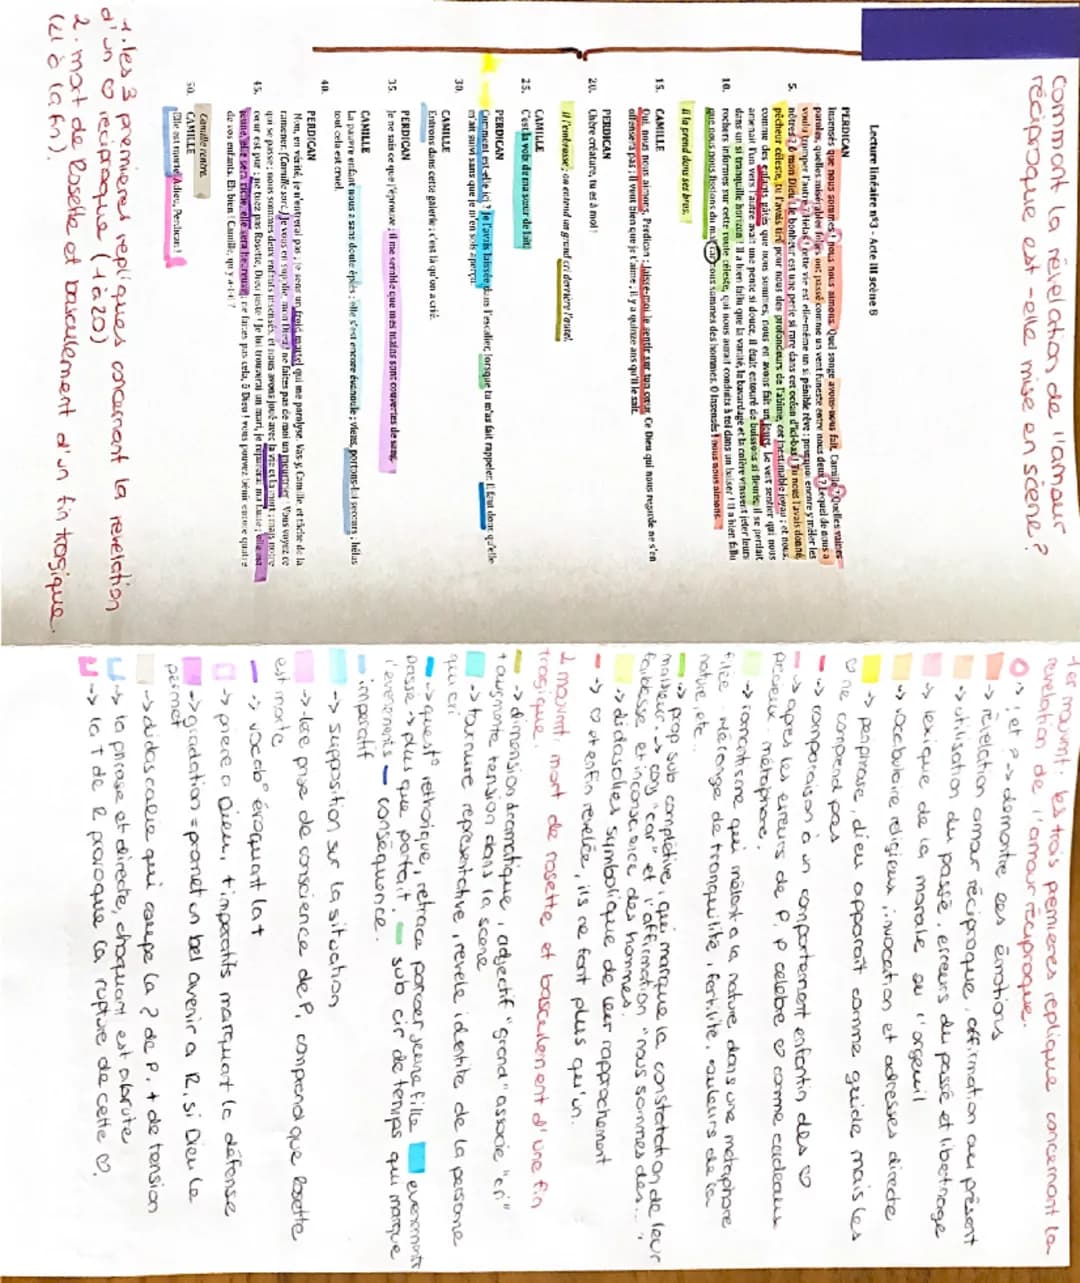 Comment la révélation de l'amour
réciproque est-elle mise en scène?
Lecture linéaire n°3 - Acte III scène 8
PERDICAN
Insensés que nous sommes ! nous nous aimons. Quel songe avons-nous fait, Camille ? Quelles vaines
paroles, quelles misérables folies ont passé comme un vent funeste entre nous deux ? Lequel de nous a
voulu tromper l'autre ? Hélas ! cette vie est elle-même un si pénible rêve : pourquoi encore y mêler les
5. nôtres ? ô mon Dieu ! le bonheur est une perle si rare dans cet océan d'ici-bas ! Tu nous l'avais donné,
pêcheur céleste, tu l'avais tiré pour nous des profondeurs de l'abîme, cet inestimable joyau ; et nous,
comme des enfants gâtés que nous sommes, nous en avons fait un jouet. Le vert sentier qui nous
amenait l'un vers l'autre avait une pente si douce, il était entouré de buissons si fleuris, il se perdait
dans un si tranquille horizon ! Il a bien fallu que la vanité, le bavardage et la colère vinssent jeter leurs
10. rochers informes sur cette route céleste, qui nous aurait conduits à toi dans un baiser ! Il a bien fallu
que nous nous fissions du mal, car nous sommes des hommes. Ô insensés ! nous nous aimons.
Il la prend dans ses bras.
CAMILLE
15. Oui, nous nous aimons, Perdican ; laisse-moi le sentir sur ton cœur. Ce Dieu qui nous regarde ne s'en
offensera pas ; il veut bien que je t'aime ; il y a quinze ans qu'il le sait.
PERDICAN
20. Chère créature, tu es à moi !
Il l'embrasse ; on entend un grand cri derrière l'autel.
CAMILLE
25. C'est la voix de ma sœur de lait.
PERDICAN
Comment est-elle ici ? Je l'avais laissée dans l'escalier, lorsque tu m'as fait rappeler. Il faut donc qu'elle
m'ait suivi sans que je m'en sois aperçu.
30. CAMILLE
Entrons dans cette galerie ; c'est là qu'on a crié.
PERDICAN
35. Je ne sais ce que j'éprouve ; il me semble que mes mains sont couvertes de sang.
CAMILLE
La pauvre enfant nous a sans doute épiés ; elle s'est encore évanouie ; viens, portons-lui secours ; hélas
tout cela est cruel.
40. PERDICAN
Non, en vérité, je n'entrerai pas ; je sens un froid mortel qui me paralyse. Vas-y, Camille et tâche de la
ramener. (Camille sort.) Je vous en supplie, mon Dieu ! ne faites pas de moi un meurtrier ! Vous voyez ce
qui se passe ; nous sommes deux enfants insensés, et nous avons joué avec la vie et la mort ; mais notre
cœur est pur ; ne tuez pas Rosette, Dieu juste ! Je lui trouverai un mari, je réparerai ma faute ; elle est
45. jeune, elle sera riche, elle sera heureuse ; ne faites pas cela, ô Dieu ! vous pouvez bénir encore quatre
de vos enfants. Eh bien ! Camille, qu'y a-t-il ?
Camille rentre.
50. CAMILLE
Elle est morte. Adieu, Perdican !
1. les 3 premieres repliques concernant la revelation
d'un ♡ réciproque (1 à 20)
2. mort de Rosette et basculement d'un fin tragique.
(21 à la fin).
1er mouvmt : les trois premieres replique concernant la
révélation de l'amour réciproque.
-> ! et ? -> démontre ces émotions
-> révélation amour réciproque, affirmation au présent
-> utilisation du passé, erreurs du passé et libertinage
-> lexique de la morale ou l'orgeuil
-> vocabulaire religieux, invocation et adresses directe
-> périphrase, dieu apparait comme guide mais les
♡ ne conprend pas
-> comparaison à un comportement enfantin des ♡
-> apres les erreurs de P, P célèbre ♡ comme cadeaux
precieux. métaphore.
-> romantisme qui mélent a la nature dans une métaphore
filée. Mélange de tranquilité, fertilité, couleurs de la
nature, etc..
-> prop sub complétive, qui marque la constatation de leur
malheur. -> conj "car" et l'affirmation "nous sommes des..."
faiblesse et inconscience des hommes.
-> didascalies symbolique de leur rapprochement
-> ♡ et enfin revelée, ils ne font plus qu'un.
2 mouvmt : mort de rosette et basculement d'une fin
tragique.
-> dimension dramatique, adjectif "grand" associé "cri"
+ augmente tension dans la scene
-> tournure representative, revele identité de la personne
qui cri
-> quest° rethorique, retrace parcer jeune fille evenements
passé -> plus que parfait. sub cir de temps qui marque
l'evenements - consequence.
imperatif
-> supposition sur la situation
-> lére prise de conscience de P, comprend que Rosette
est morte
-> vocab° évoquant la t
-> priere a Dieu, + imperatifs marquant la défense
-> gradation = promet un bel avenir a R, si Dieu le
permet
-> didascalie qui coupe la ? de P. + de tension
-> la phrase et directe, choquant est abrute
-> la T de R provoque la rupture de cette ♡.